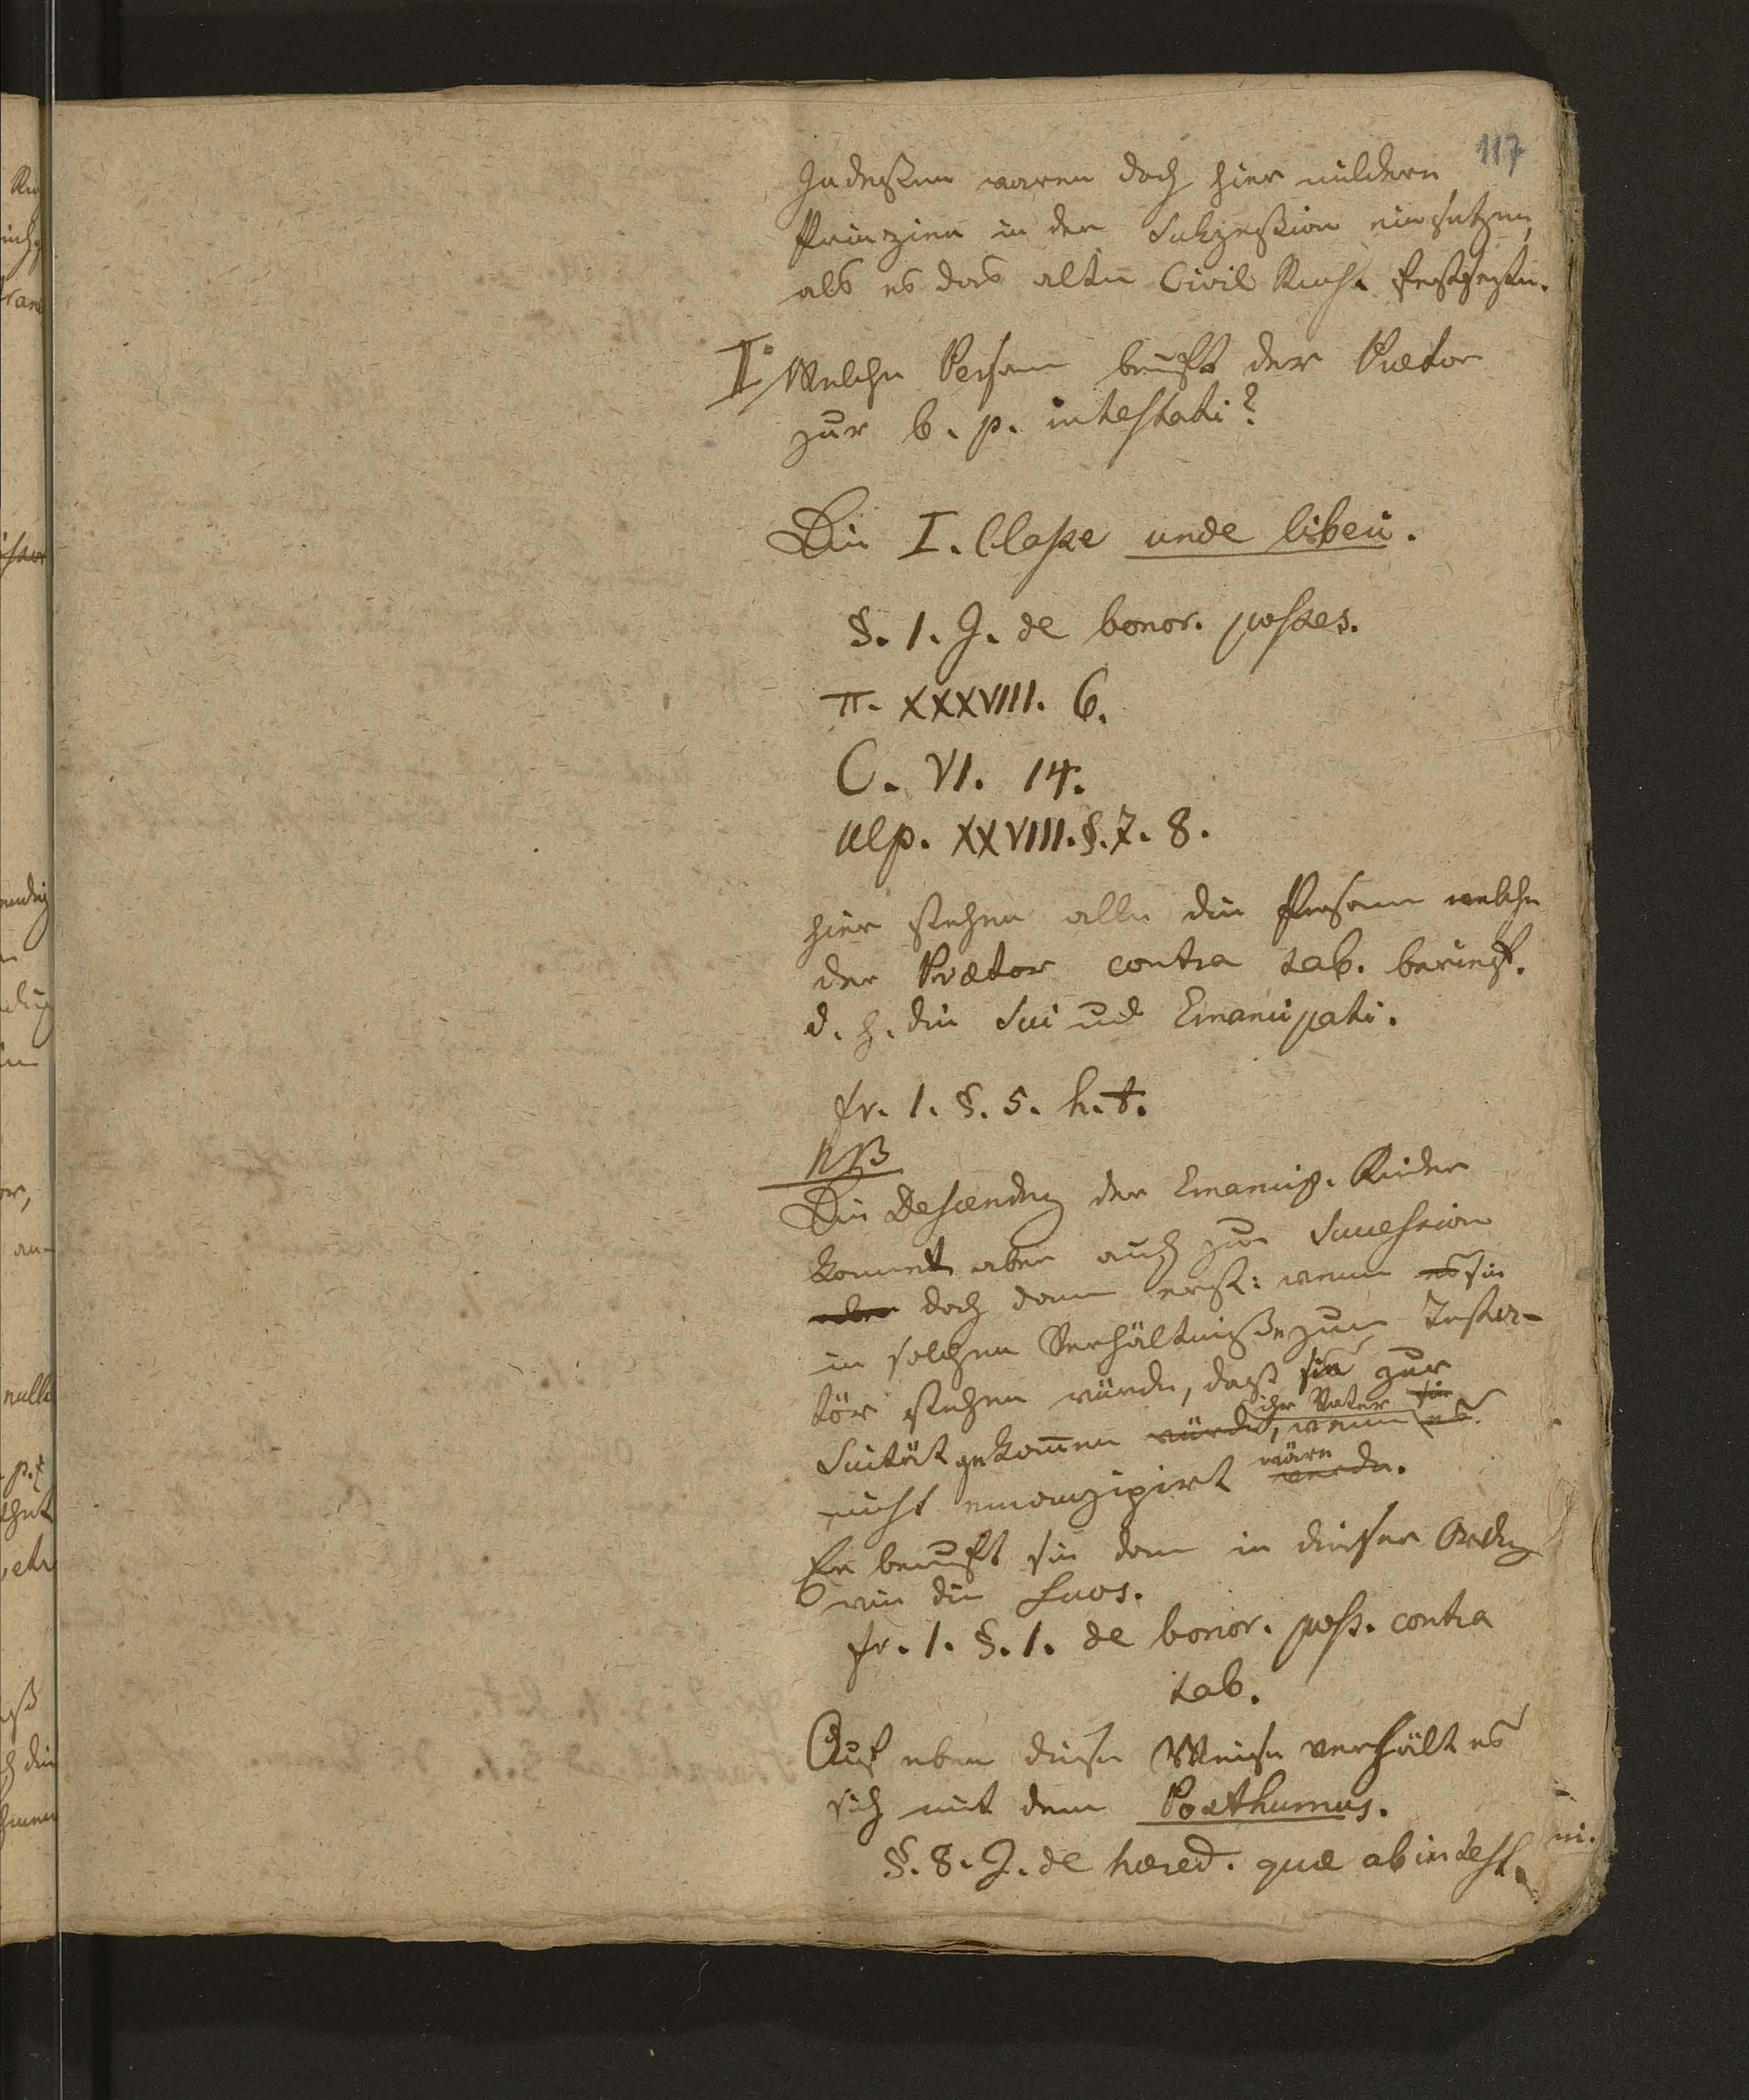 117
Indeßen waren doch hier mildere
Prinzien in der Sukzeßion einsetzen,
als es das alte Civil Recht festsezte.
II. Welche Person beruft der Prætor
zur b. p. intestati?
Die I. Classe unde liberi.
§. 1. J. de bonor. posses.
π. XXXVIII. 6.
C. VI. 14.
Ulp. XXVIII. §. 7. 8.
hier stehen alle die Persone welche
der Prætor contra tab. berieft.
d. h. die Sui und Emancipati.
fr. 1. §. 5. h. t.
NB
Die Descendz der Emancip. Kinder
kommt aber auch zur Succession
aber doch dann erst: wenn es sie
in solchen Verhältniße zum Testa-
tör stehen würde, daß sie zur
ihr Vater sie
Suität gekom̄en würde, wenn es
wäre
nicht emanzipirt werde.
Er beruft sie dann in dieser Ordng
wie die Suos.
fr. 1. §. 1. de bonor. poss. contra
tab.
Auf eben diese Weise verhält es
sich mit dem Posthumus.
§. 8. J. de hæred. quæ ab intest.